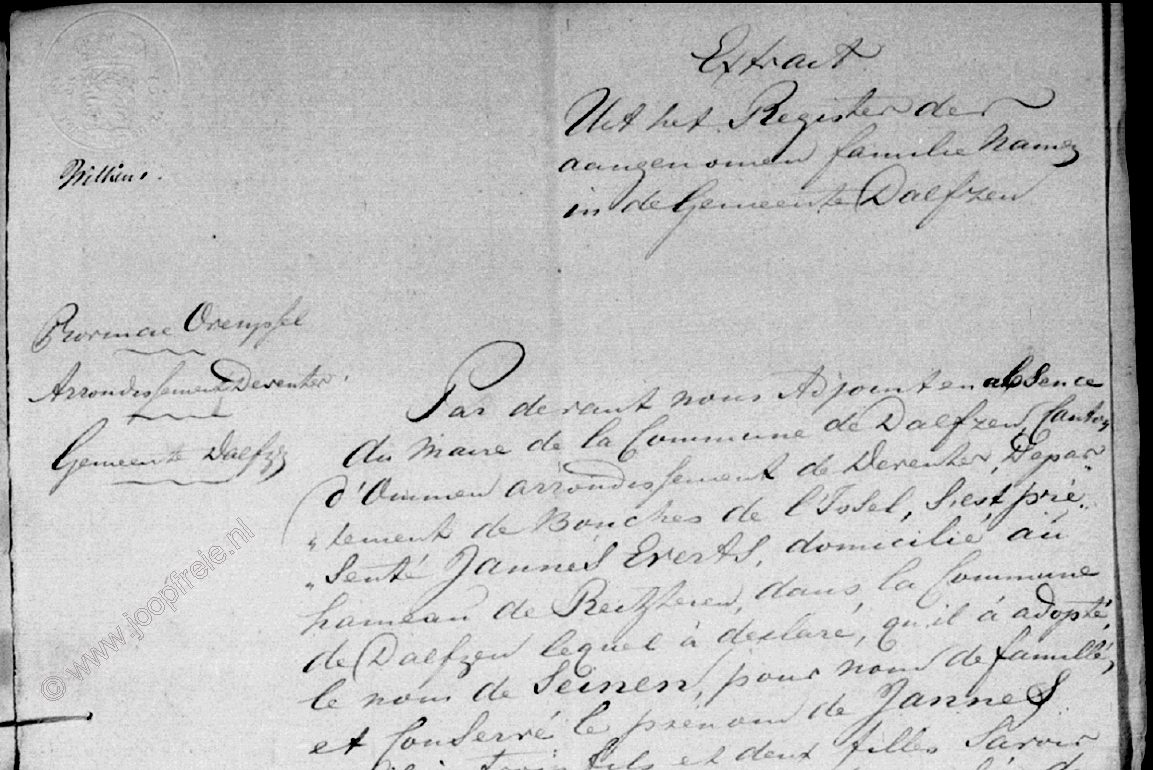 Extrait
Uit het Register der
aangenomen familie Namen
in de Gemeente Dalfzen
Willems.
Provincie Overyssel
Arrondissement Deventer
Gemeente Dalfzen
Par devant nous Adjoint en absence
du Maire de la Commune de Dalfzen, Canton
d'Ommen arrondissement de Deventer, Depar„
„tement de Bouches de l'Issel, S'est pré„
„senté Jannes Everts, domicilié au
hameau de dans la Commune
de Dalfzen lequel à déclaré, qu'il à adopté,
le nom de Seinen, pour nom de famille,
et Conservé le prénom de Jannes
trois fils et deux filles Savoir
© www.joopfreie.nl